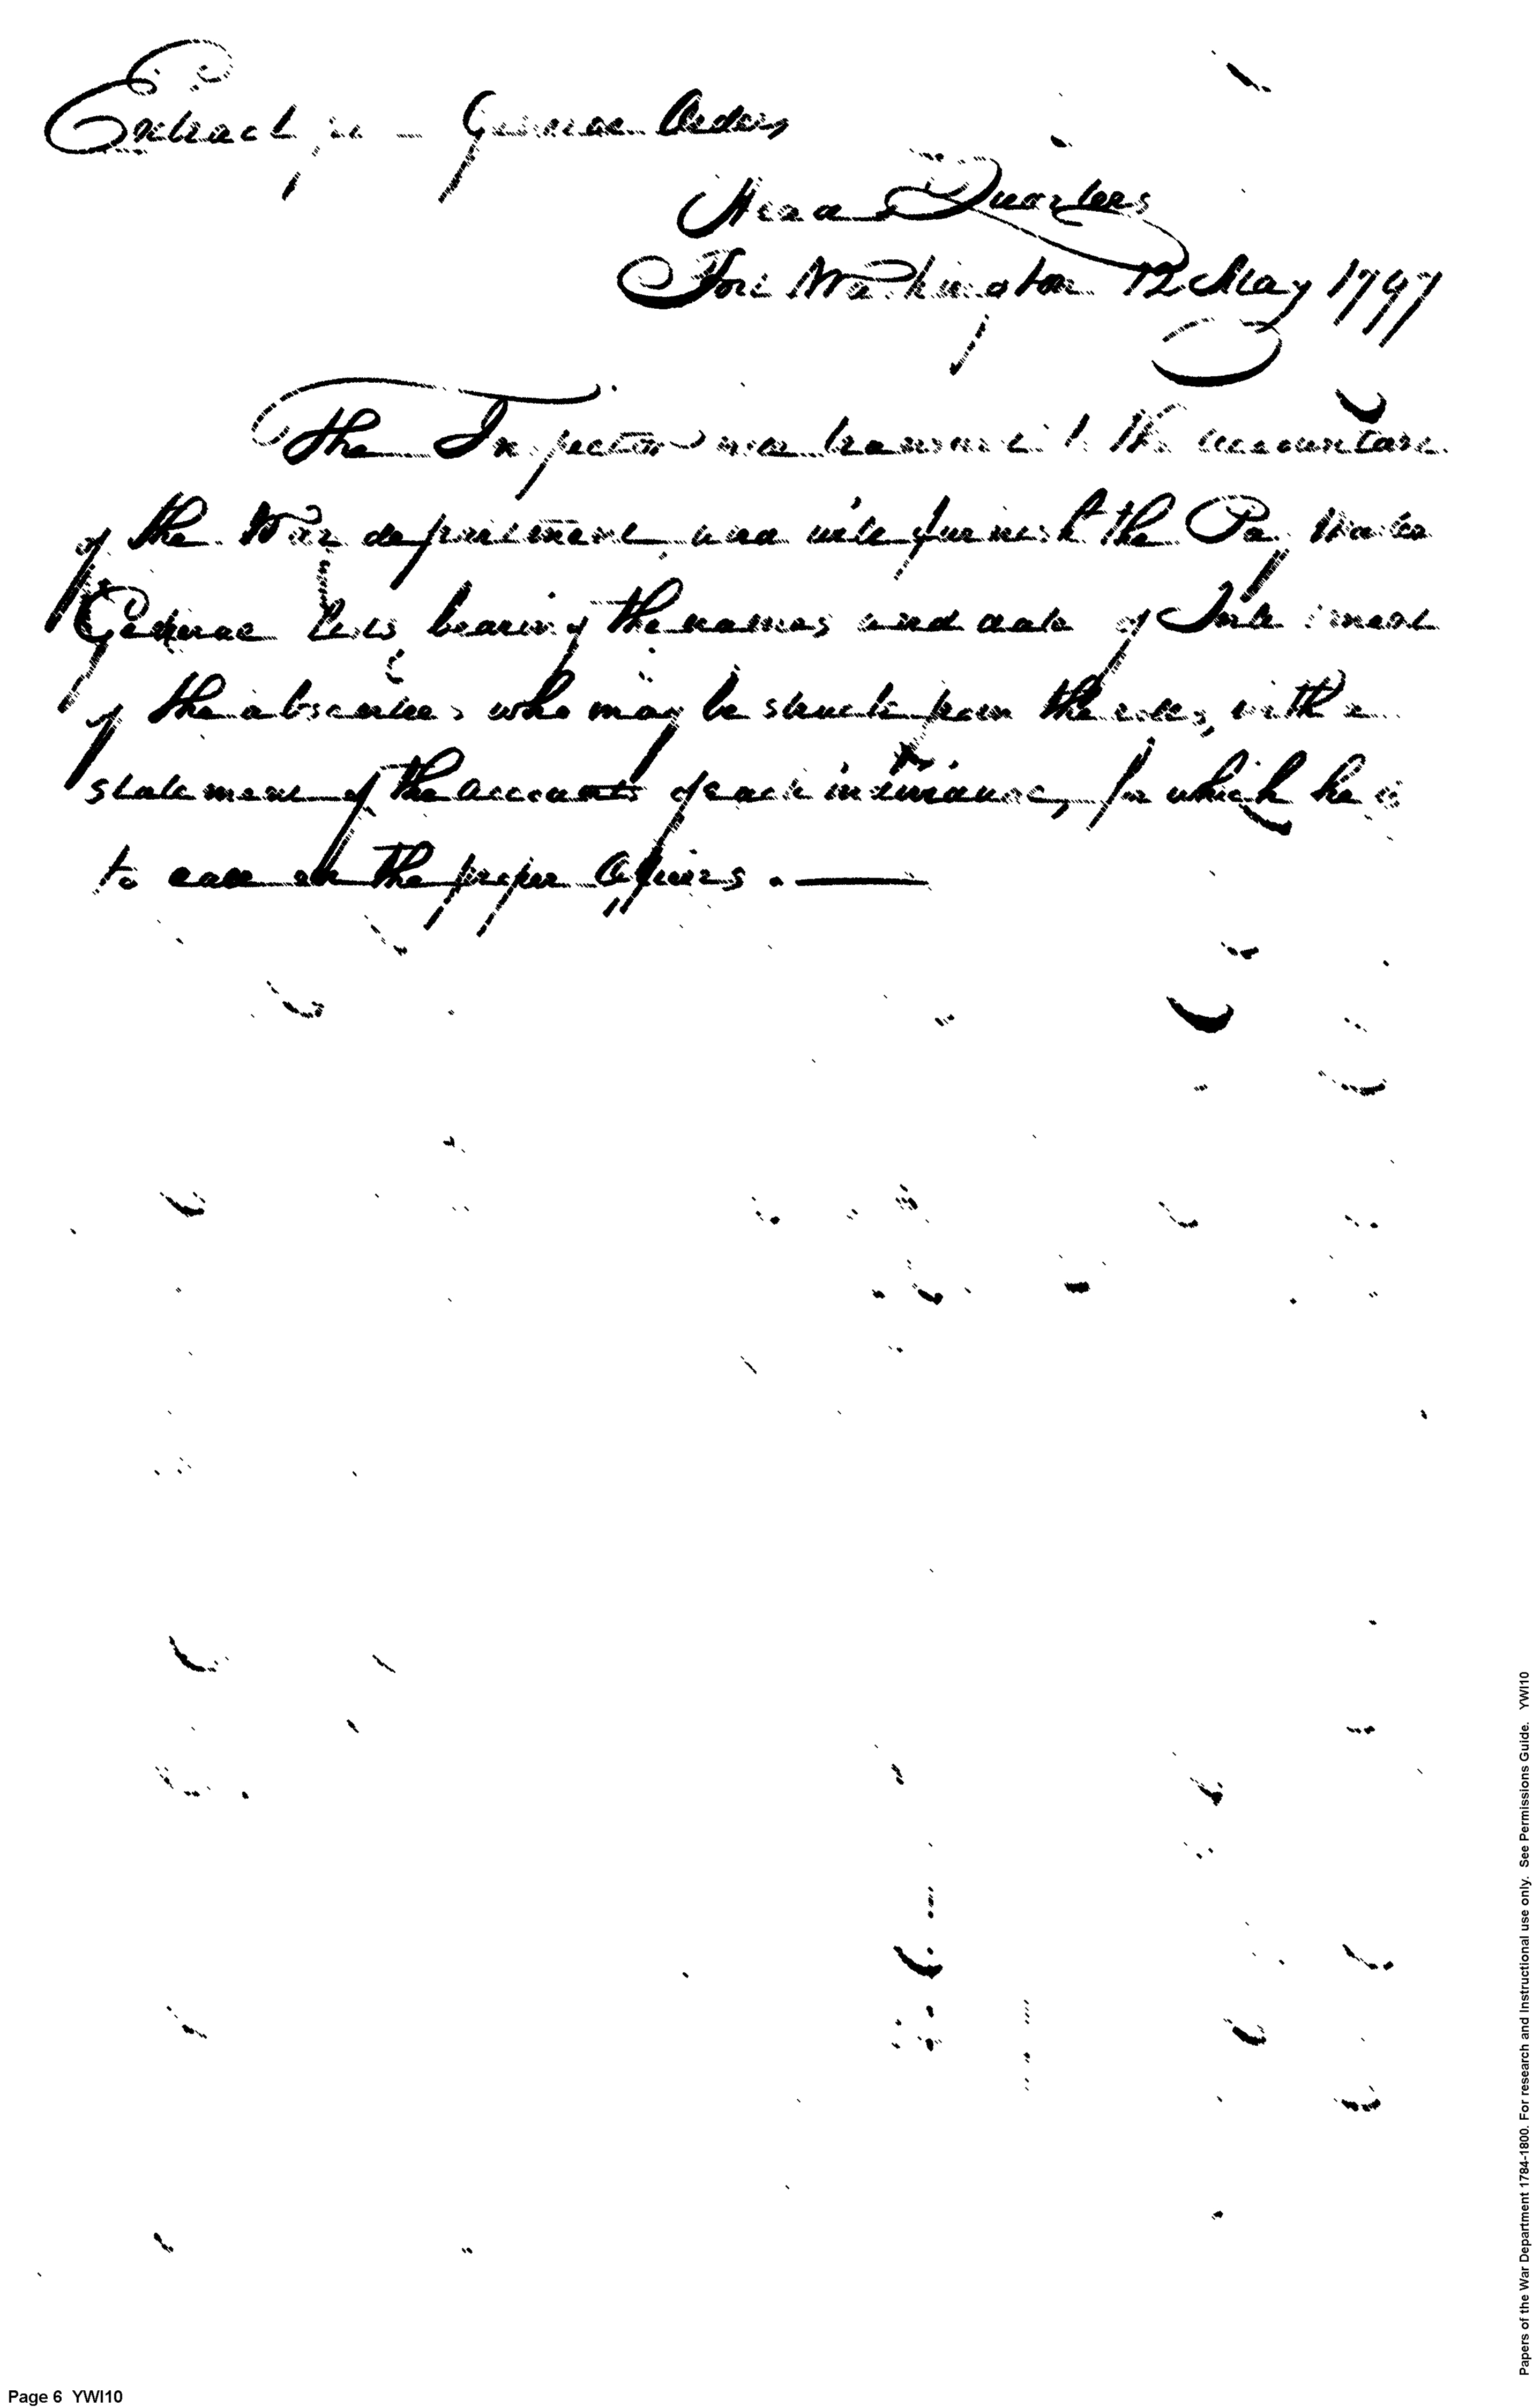 Extract from General Orders
Head Quarters
Fort Washington 12 May 1797
The Inspector will transmit to the accountant
of the War department, and will furnish the Pay Master
General lists, bearing the names and date of Inlistment
of the absentees who may be struck from the rolls, with a
statement of the accounts of each individual, for which he is
to call on the proper Officers. —
Papers of the War Department 1784-1800. For research and Instructional use only. See Permissions Guide. YWI10
Page 6 YWI10